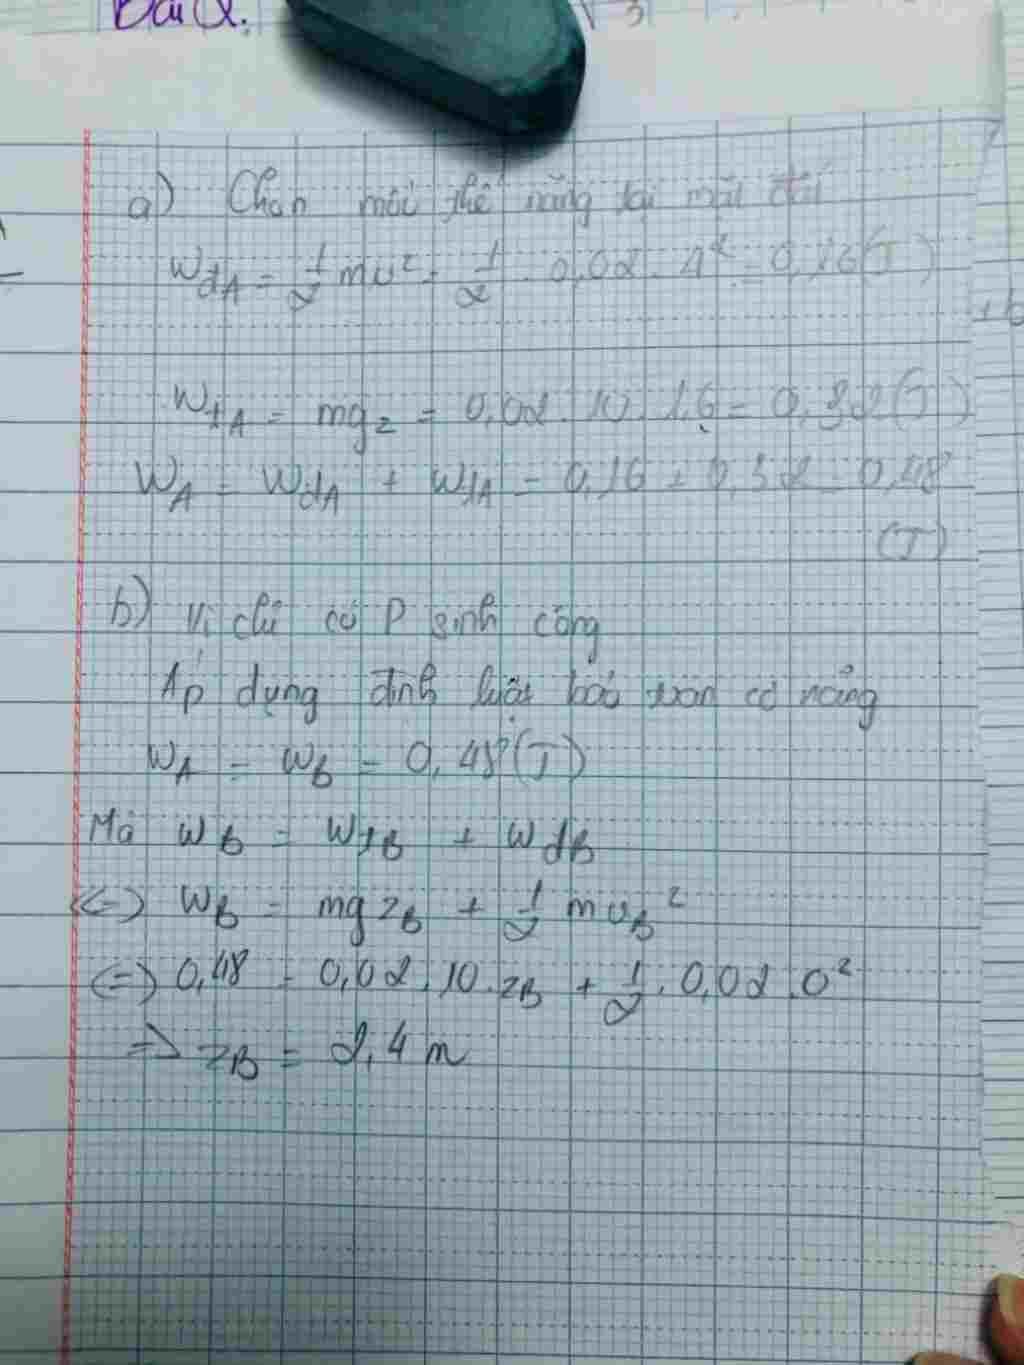 Bài 2.
3
a) Chọn mốc thế năng tại mặt đất
WđA = 1/2 mv² = 1/2 . 0,02 . 4² = 0,16(J)
WtA = mgz = 0,02 . 10 . 1,6 = 0,32(J)
WA = WđA + WtA = 0,16 + 0,32 = 0,48
(J)
b) Vì chỉ có P sinh công
Áp dụng định luật bảo toàn cơ năng
WA = WB = 0,48(J)
Mà WB = WtB + WđB
(=) WB = mgzB + 1/2 mvB²
(=) 0,48 = 0,02 . 10 . zB + 1/2 . 0,02 . 0²
=> zB = 2,4 m